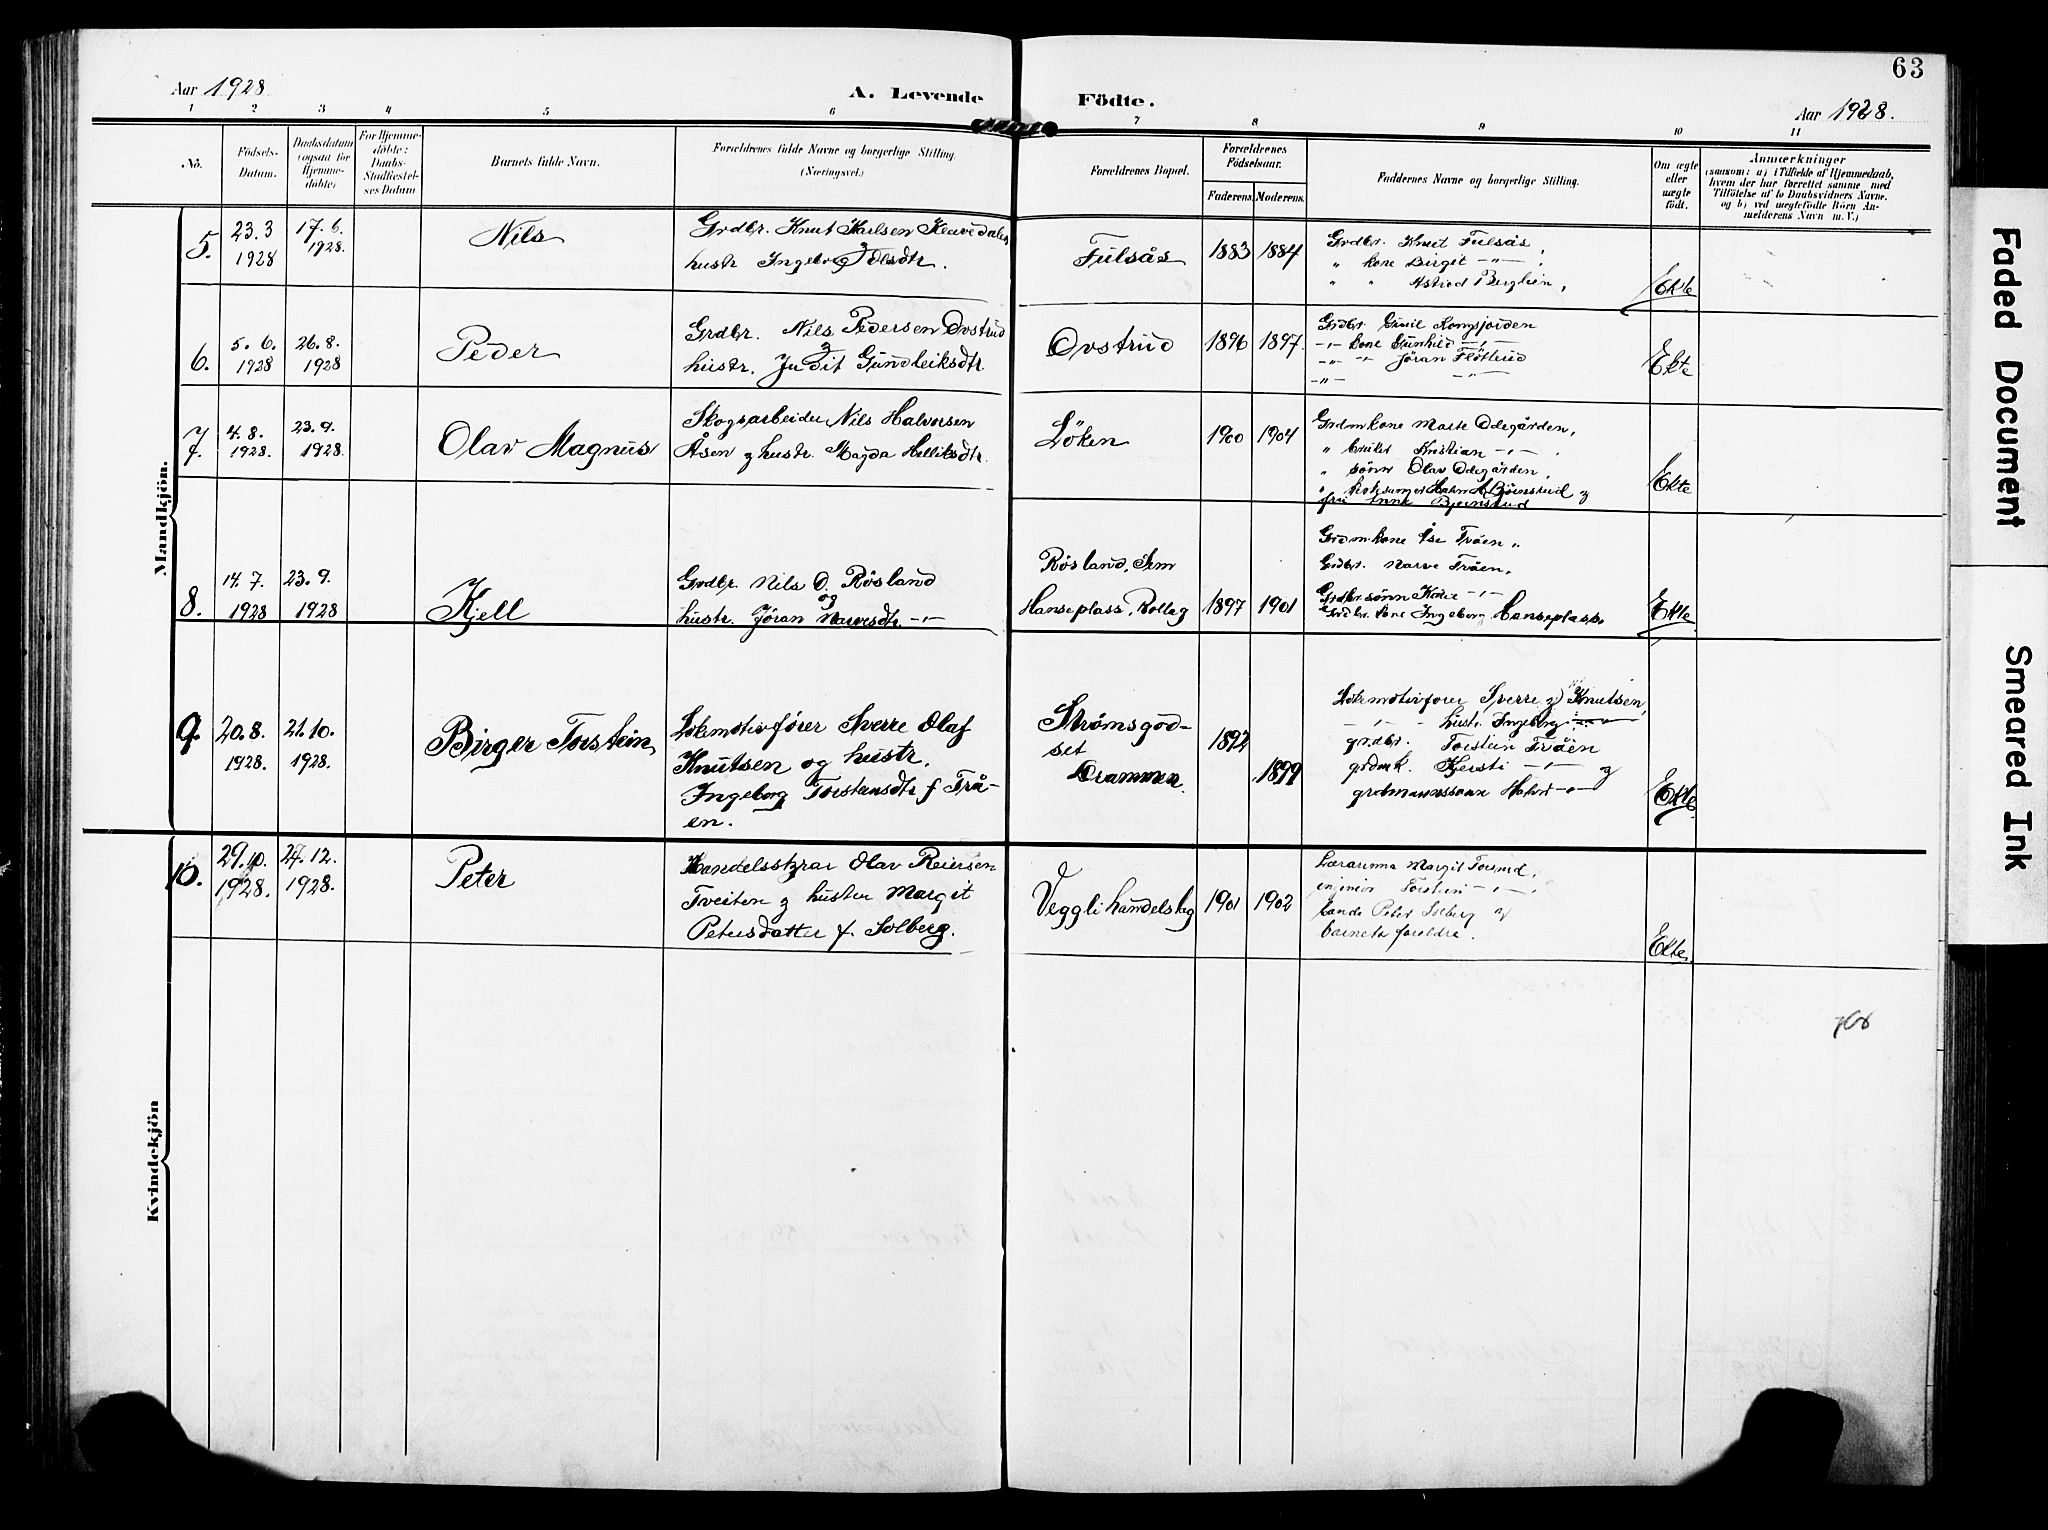 63
Aar 1928
A. Levende Födte.
Aar 1928.
1 2 3 4 5 6 7 8 9 10 11
No.
Födsels-
Datum.
Daabsdatum
(ogsaa for
Hjemme-
döbte)
For Hjemme-
döbte:
Daabs-
Stadfæstel-
ses Datum
Barnets fulde Navn.
Forældrenes fulde Navne og borgerlige Stilling.
(Næringsvei.)
Forældrenes Bopæl.
Forældrenes
Födselsaar.
Faderens. Moderens.
Faddernes Navne og borgerlige Stilling.
Om ægte
eller
uægte
födt.
Anmærkninger
(saasom: a) i Tilfælde af Hjemmedaab,
hvem der har forrettet samme med
Tilföielse af to Daabsvidners Navne.
og b) ved uægtefödte Börn An-
melderens Navn m. V.)
Mandkjön.
5.
23.3
1928
17.6.
1928.
Nils
Grdbr. Knut
hustr. Ingeborg
Fulsås
1883 1884
Grdbr. Knut Fulsås,
" kone Birget -"-,
" " Astrid Berglien,
Ekte
6.
5. 6.
1928
26.8.
1928
Peder
Grdbr. Nils Pedersen Ovstrud
&
hustr. Judit Gundleiksdtr.
Ovstrud
1896 1897.
Grdbr. Kongsjorden
-"- kone Gunhild -"-
-"- " Jöran Flötterud
-"- -"-
Ekte
7.
4.8.
1928.
23.9.
1928.
Olav Magnus
Skogsarbeider Nils Halvorsen
Åsen & hustr. Magda Helliksdtr.
Löken
1900 1904
Grdmkone Marte Ödegården,
" Kristian -"-,
" sönn Olav Ödegården,
fru Bjørnstud
Ekte
8.
14.7.
1928
23.9.
1928
Kjell
Grdbr. Nils O. Rösland
og
hustr. Jöran Narvesdtr. -"-
Rösland,
Hanseplass, Rollag
1897 1901
Grdmkone Åse Tråen,
Grdbr. Narve Tråen,
Grdbr. sønn -"-
Grdbr. kone Ingeborg Hanseplass.
Ekte
9.
20.8.
1928.
21.10.
1928.
Birger Torstein,
Lokomotivfører Sverre Olaf
Knutsen og hustr.
Ingeborg Torstensdtr f Trå-
en.
Strömsgod-
set
Drammen.
1892
1899
Lokomotivfører Sverre Knutsen,
-"- hustr. Ingeborg
grdbr. Torstein Tråen
grdmk. Kjersti -"- &
grdmannssønn Halvor -"-
Ekte.
10.
29.10.
1928.
27.12.
1928.
Peter
Handelsstyrar Olav Reiersen
Tveiten & hustru Margit
Petersdatter f. Solberg.
Veggli handelslag
1901 1902
Lærarinna Margit
Torstein -"-,
Peter Solberg &
barnets foreldre.
Ekte.
Kvindekjön
Faded Document
Smeared Ink